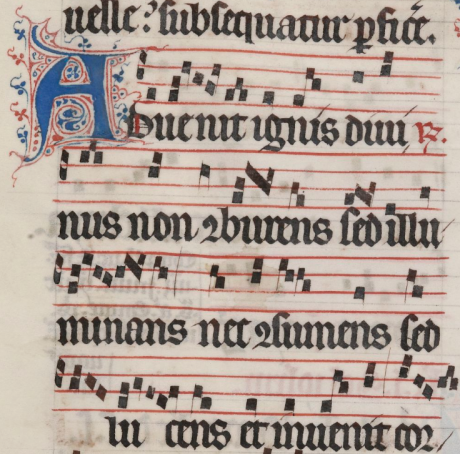 uelle? subsequatur pfice.
Aduenit ignis diui ℟.
nus non ꝯburens sed illu
minans nec ꝯsumens sed
lu cens et inuenit cor